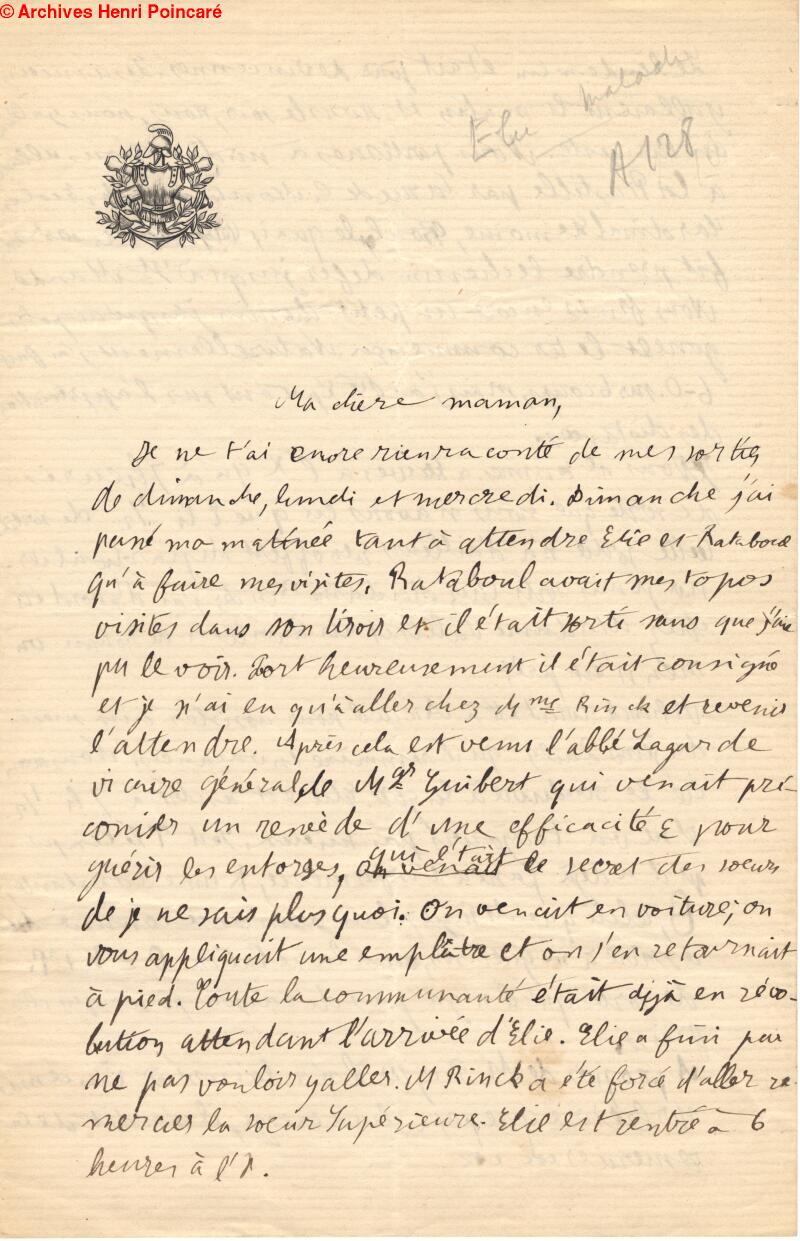 © Archives Henri Poincaré
Elie malade
A128
Ma chère maman,
Je ne t'ai encore rien raconté de mes sorties
de dimanche, lundi et mercredi. Dimanche j'ai
passé ma matinée tant à attendre Elie et
qu'à faire mes visites. Rataboul avait mes topos
visites dans son tiroir et il était sorti sans que j'aie
pu le voir. Fort heureusement il était consigné
et je n'ai eu qu'à aller chez Mme Rinck et revenir
l'attendre. Après cela est venu l'abbé Lagarde
vicaire général de Mgr Guibert qui venait pré-
coniser un remède d'une efficacité ε pour
guérir les entorses, on venait qui était le secret des soeurs
de je ne sais plus quoi. On venait en voiture; on
vous appliquait une emplâtre et on s'en retournait
à pied. Toute la communauté était déjà en révo-
lution attendant l'arrivée d'Elie. Elie a fini par
ne pas vouloir y aller. M Rinck a été forcé d'aller re-
mercier la soeur Supérieure. Elie est rentré à 6
heures à l'X.